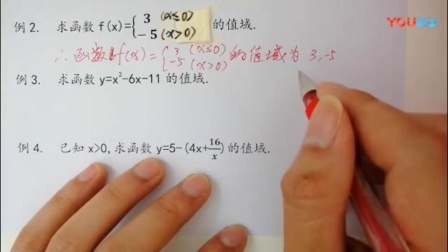 YOUKU
例2. 求函数 f(x)={ 3 (x≤0)
-5 (x>0) 的值域.
∴函数f(x)={ 3 (x≤0)
-5 (x>0) 的值域为 3,-5
例3. 求函数 y=x²-6x-11 的值域.
例4. 已知 x>0,求函数 y=5-(4x+16/x) 的值域.